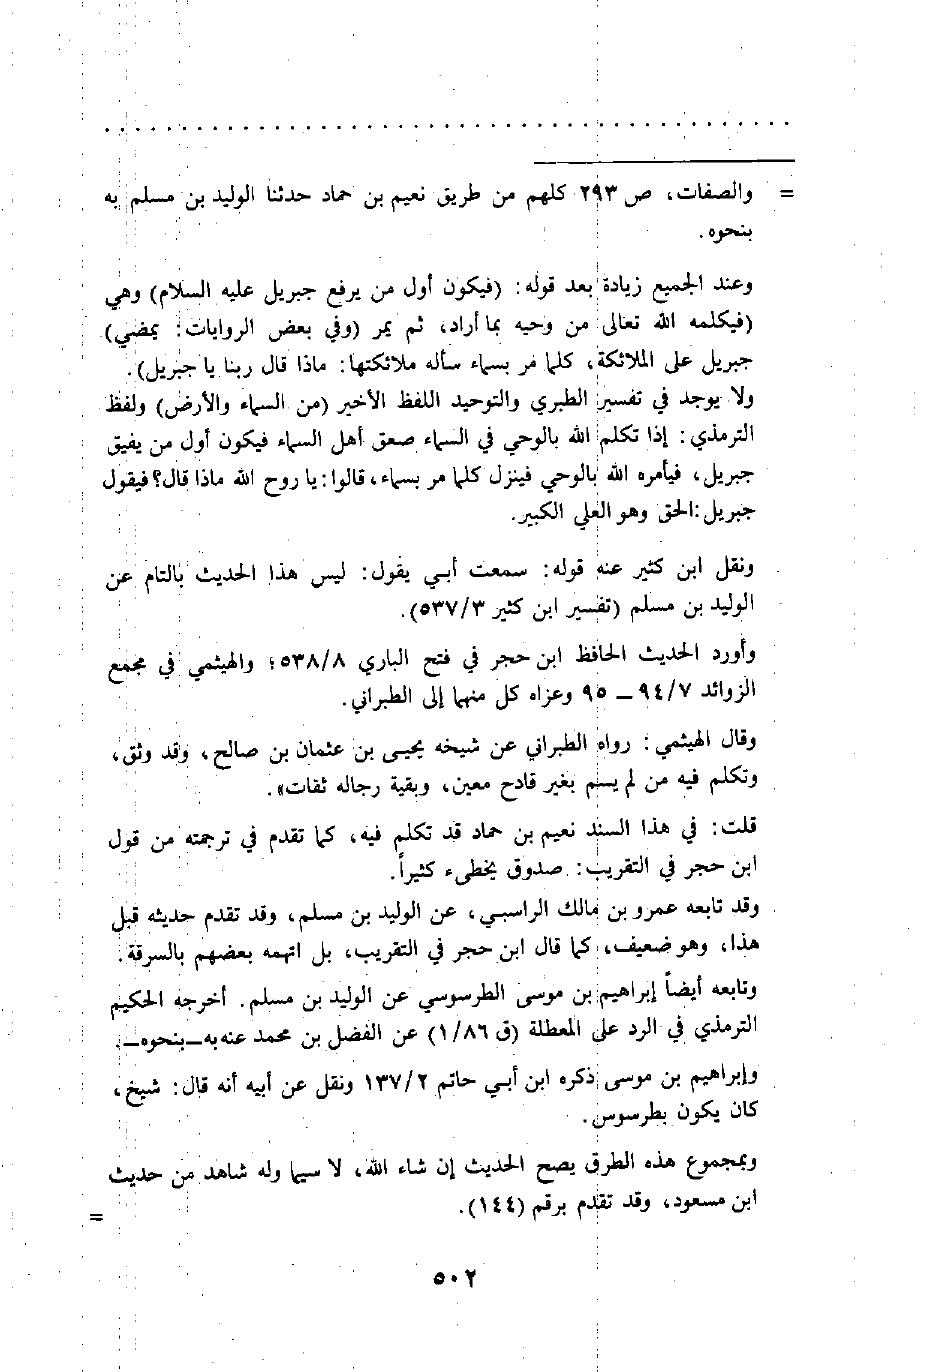 = والصفات، ص ٢٩٣ كلهم من طريق نعيم بن حماد حدثنا الوليد بن مسلم به
بنحوه.
وعند الجميع زيادة بعد قوله: (فيكون أول من يرفع جبريل عليه السلام) وهي
(فيكلمه الله تعالى من وحيه بما أراد، ثم يمر (وفي بعض الروايات: يمضي)
جبريل على الملائكة، كلما مر بسماء سأله ملائكتها: ماذا قال ربنا يا جبريل).
ولا يوجد في تفسير الطبري والتوحيد اللفظ الأخير (من السماء والأرض) ولفظ
الترمذي: إذا تكلم الله بالوحي في السماء صعق أهل السماء فيكون أول من يفيق
جبريل، فيأمره الله بالوحي فينزل كلما مر بسماء، قالوا: يا روح الله ماذا قال؟ فيقول
جبريل: الحق وهو العلي الكبير.
ونقل ابن كثير عنه قوله: سمعت أبي يقول: ليس هذا الحديث بالتام عن
الوليد بن مسلم (تفسير ابن كثير ٥٣٧/٣).
وأورد الحديث الحافظ ابن حجر في فتح الباري ٥٣٨/٨؛ والهيثمي في مجمع
الزوائد ٩٤/٧ – ٩٥ وعزاه كل منهما إلى الطبراني.
وقال الهيثمي: رواه الطبراني عن شيخه يحيى بن عثمان بن صالح، وقد وثق،
وتكلم فيه من لم يسم بغير قادح معين، وبقية رجاله ثقات».
قلت: في هذا السند نعيم بن حماد قد تكلم فيه، كما تقدم في ترجمته من قول
ابن حجر في التقريب: صدوق يخطىء كثيراً.
وقد تابعه عمرو بن مالك الراسبي، عن الوليد بن مسلم، وقد تقدم حديثه قبل
هذا، وهو ضعيف، كما قال ابن حجر في التقريب، بل اتهمه بعضهم بالسرقة.
وتابعه أيضاً إبراهيم بن موسى الطرسوسي عن الوليد بن مسلم. أخرجه الحكيم
الترمذي في الرد على المعطلة (ق ١/٨٦) عن الفضل بن محمد عنه به – بنحوه –.
وإبراهيم بن موسى ذكره ابن أبي حاتم ١٣٧/٢ ونقل عن أبيه أنه قال: شيخ،
كان يكون بطرسوس.
وبمجموع هذه الطرق يصح الحديث إن شاء الله، لا سيما وله شاهد من حديث
ابن مسعود، وقد تقدم برقم (١٤٤). =
٥٠٢